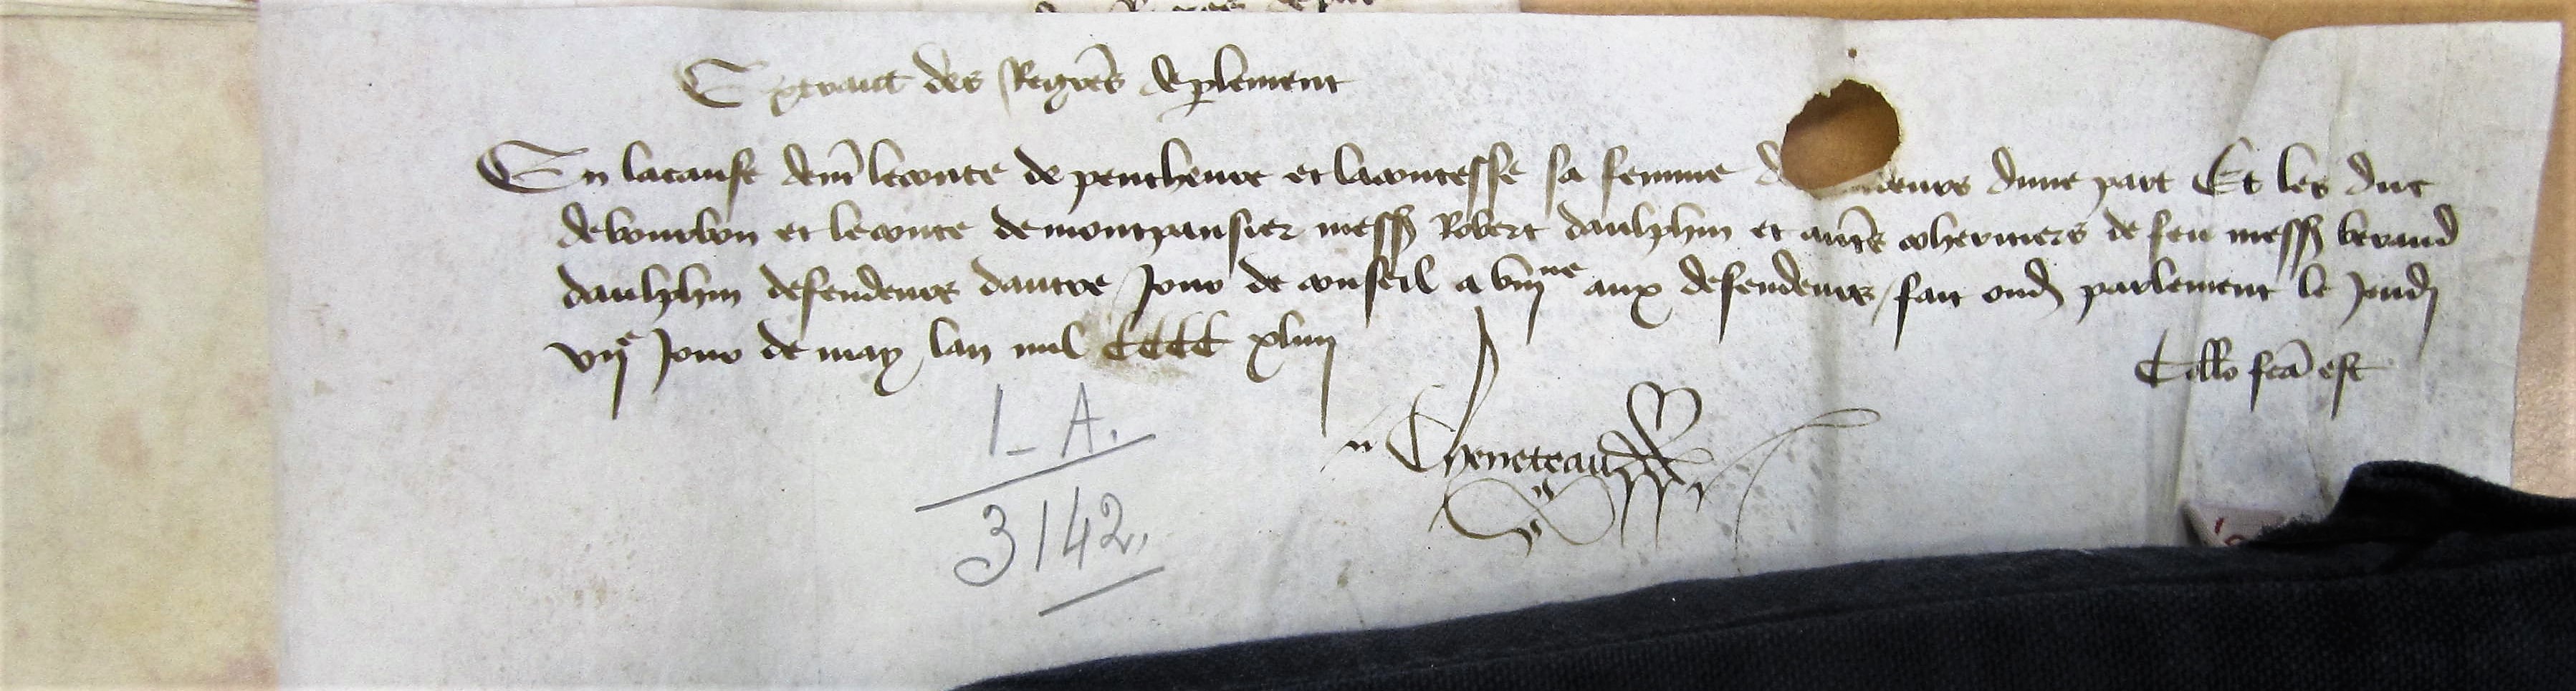 Extraict des Regrēs de plement
En la cause dent̄ le conte de penthevre et la contesse sa femme d deurs dune part Et les duc
de bourbon et le conte de montpansier mess̄ Robert daulphin et autr̄s coheritiers de feu mess̄ beraud
daulphin defendeurs dautre Jour de conseil a viiine aux defendeurs / fait oud parlement le Jeudj
vije Jour de may lan mil CCCC xliiij
Collō fcā est
Cheneteau
1_ A.
3142.